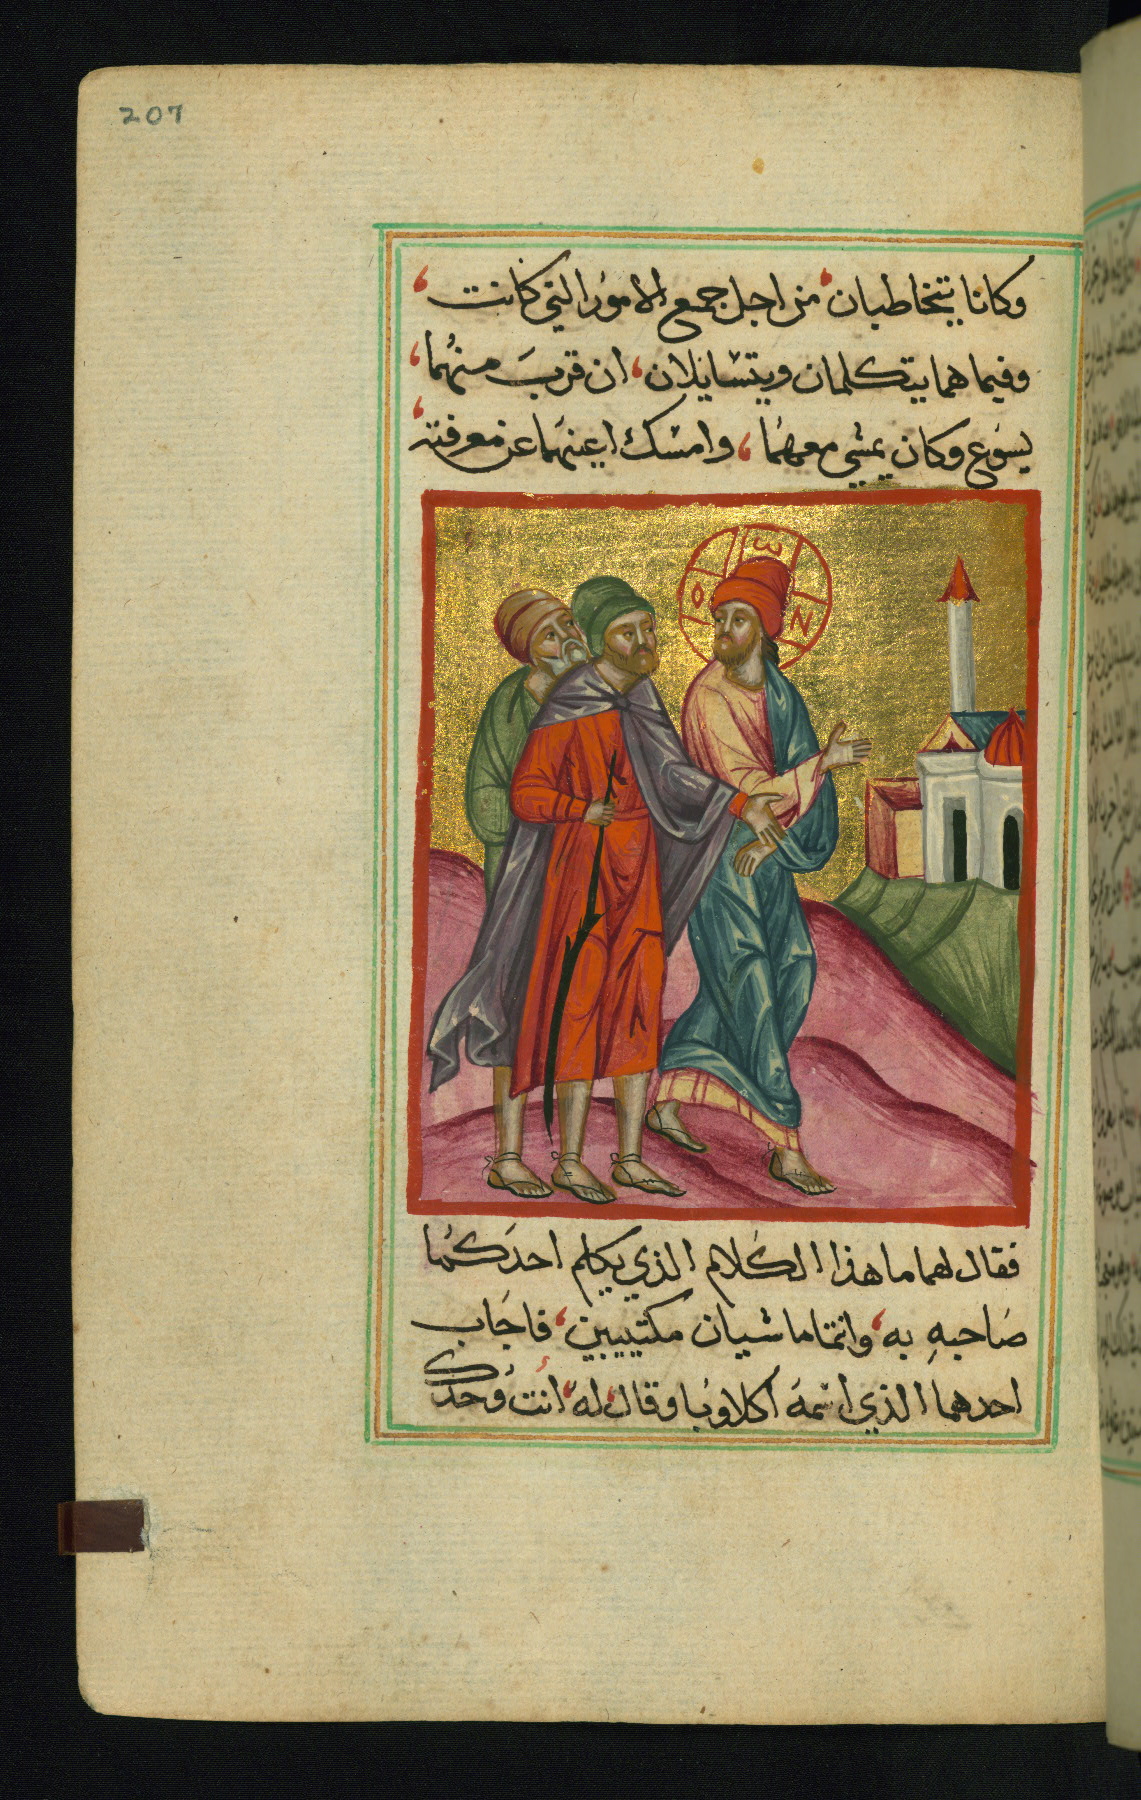 207
وكانا يتخاطبان، من اجل جمع الامور التي كانت،
وفيما هما يتكلمان ويتسايلان، ان قرب منهما،
يسوع وكان يمشي معهما، وامسك اعينهما عن معرفته،
Ο Ω Ν
فقال لهما ما هذا الكلام الذي يكلم احدكما
صاحبه به، وانتما ماشيان مكتيبين، فاجاب
احدهما الذي اسمه اكلاوبا وقال له، انت وحدك